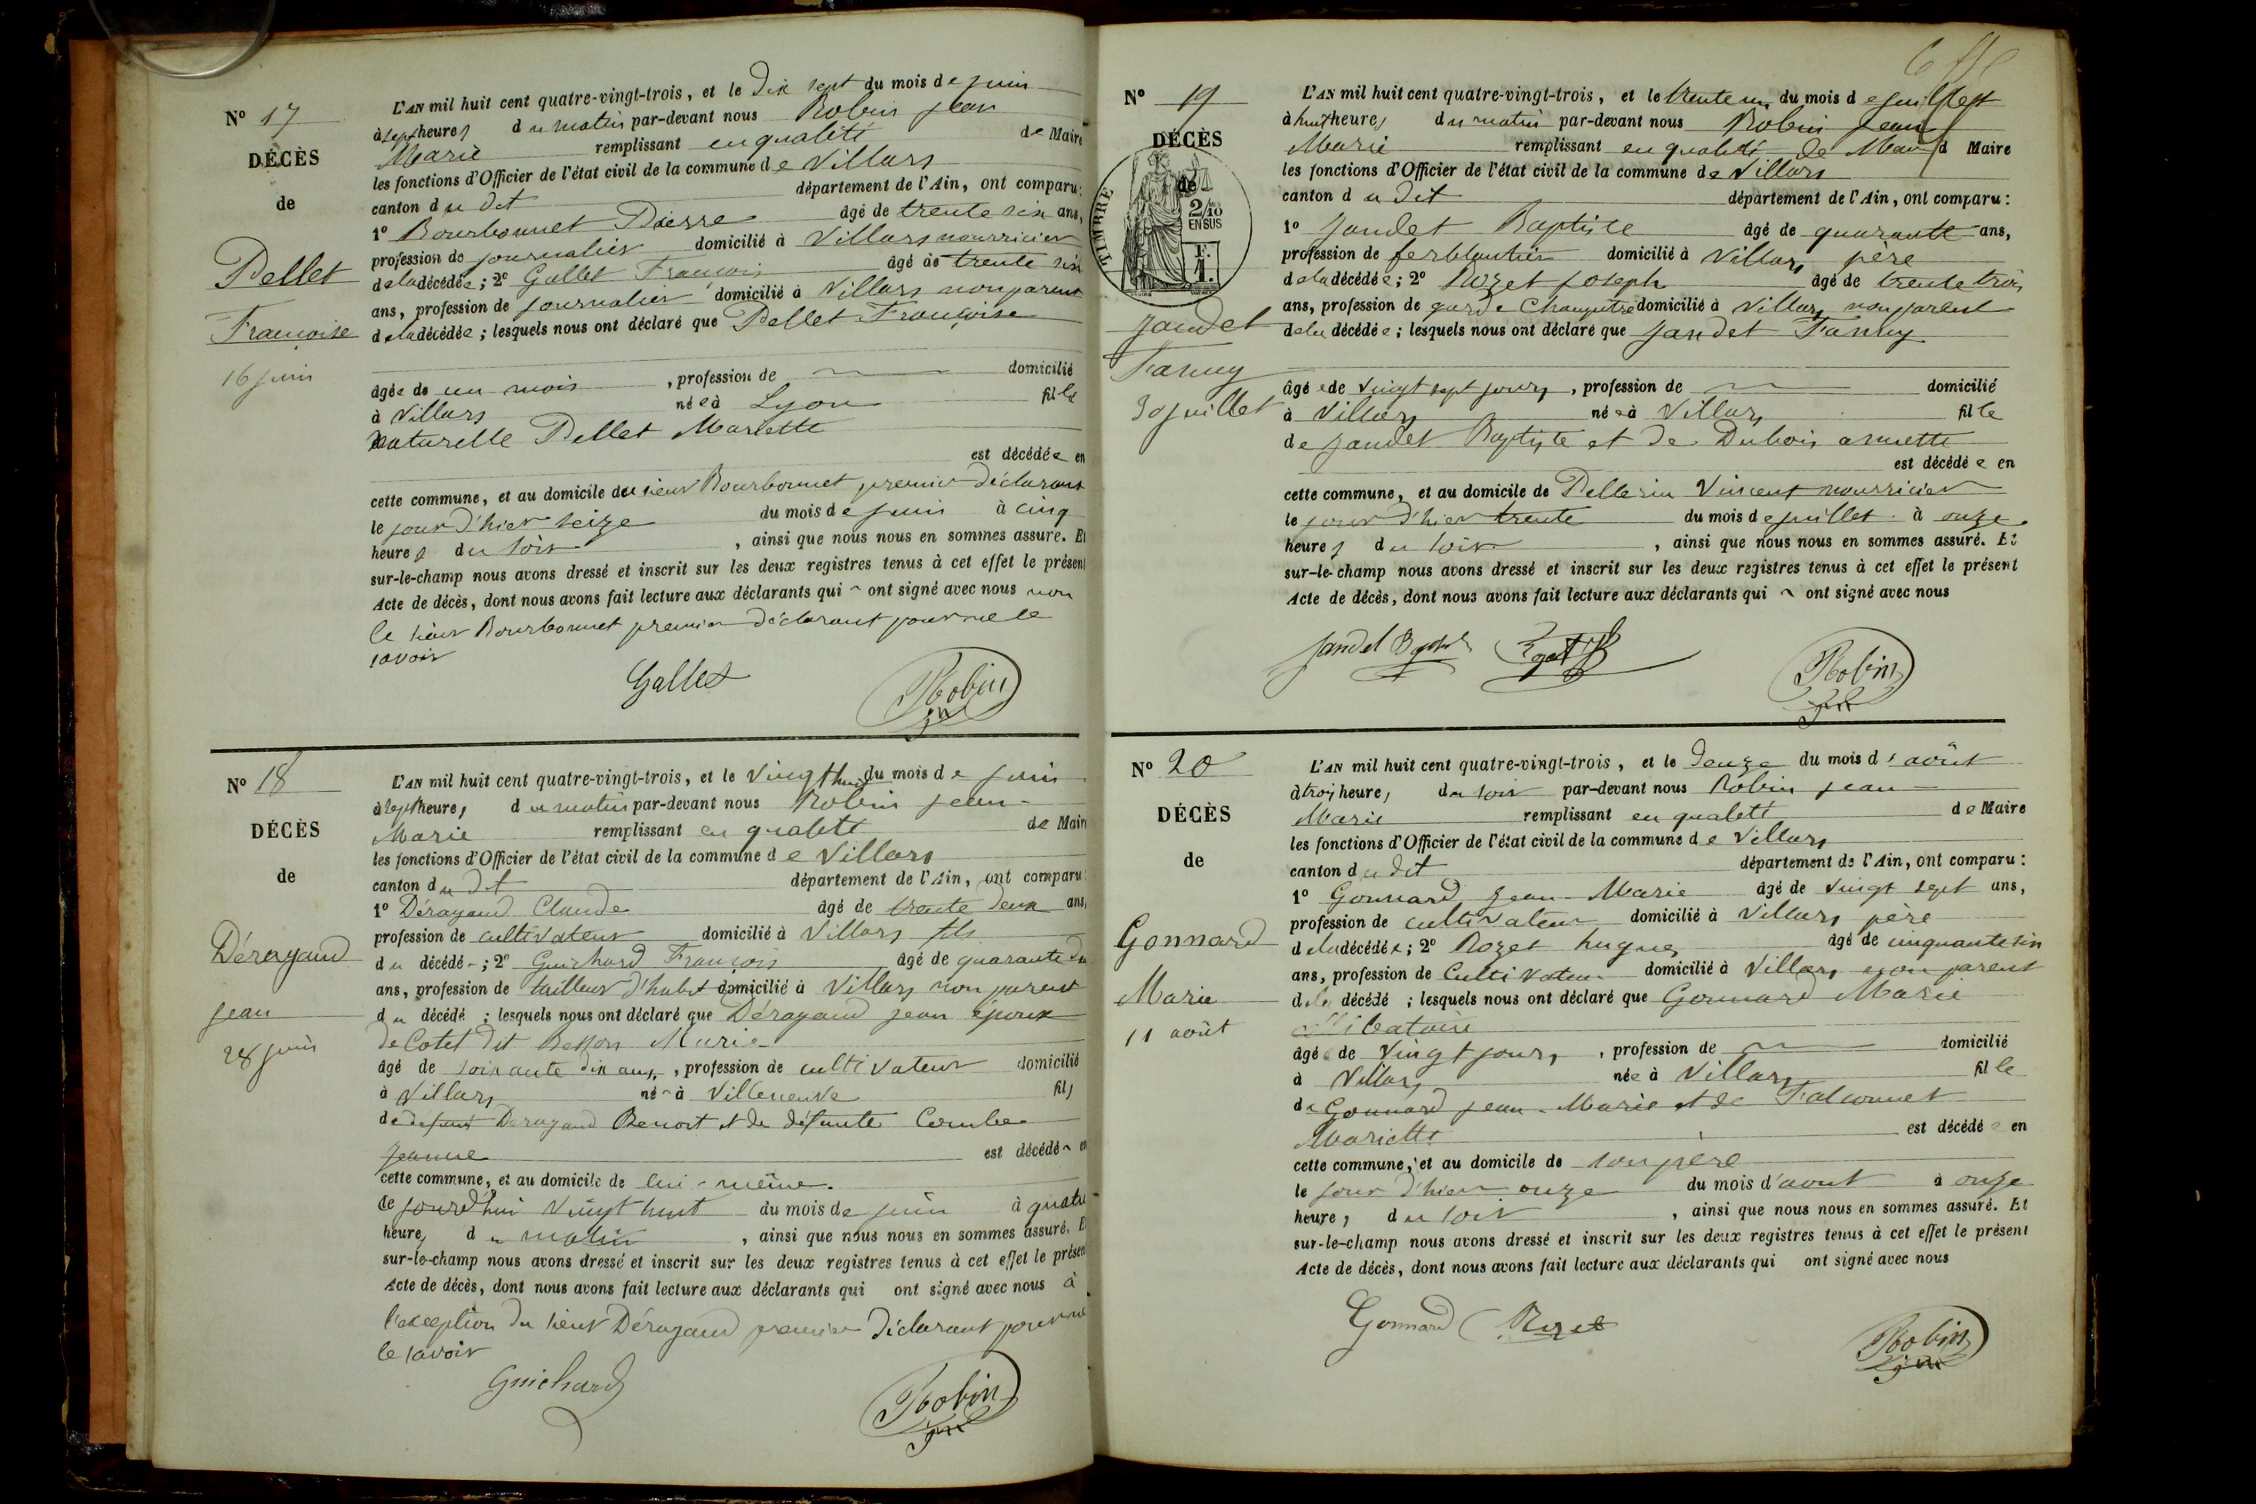 N° 17
DÉCÈS
de
Pellet
Françoise
16 juin
L'AN mil huit cent quatre-vingt-trois, et le Dix sept du mois de juin
à sept heures du matin par-devant nous Robin Jean
Marie remplissant en qualité de Maire
les fonctions d'Officier de l'état civil de la commune de Villars
canton dudit département de l'Ain, ont comparu:
1° Bourbonnet Pierre âgé de trente six ans,
profession de journalier domicilié à Villars nourricier
de la décédée; 2° Gallet François âgé de trente six
ans, profession de journalier domicilié à Villars non parent
de la décédée; lesquels nous ont déclaré que Pellet Françoise
âgée de un mois, profession de domicilié
à Villars née à Lyon fille
naturelle Pellet Mariette
est décédée en
cette commune, et au domicile du sieur Bourbonnet premier déclarant
le jour d'hier seize du mois de juin à cinq
heures du soir, ainsi que nous nous en sommes assuré. Et
sur-le-champ nous avons dressé et inscrit sur les deux registres tenus à cet effet le présent
Acte de décès, dont nous avons fait lecture aux déclarants qui ont signé avec nous non
le sieur Bourbonnet premier déclarant pour ne le
savoir
Gallet Robin
N° 18
DÉCÈS
de
Dérayaud
Jean
28 juin
L'AN mil huit cent quatre-vingt-trois, et le vingt huit du mois de juin
à sept heures du matin par-devant nous Robin Jean
Marie remplissant en qualité de Maire
les fonctions d'Officier de l'état civil de la commune de Villars
canton dudit département de l'Ain, ont comparu:
1° Dérayaud Claude âgé de trente deux ans,
profession de cultivateur domicilié à Villars fils
du décédé; 2° Guichard François âgé de quarante
ans, profession de tailleur d'habit domicilié à Villars non parent
du décédé; lesquels nous ont déclaré que Dérayaud Jean époux
de Cotet dit Besson Marie
âgé de soixante dix ans, profession de cultivateur domicilié
à Villars né à Villeneuve fils
de défunt Derayaud Benoit et de défunte Combe
Jeanne est décédé en
cette commune, et au domicile de lui-même.
ce jourd'hui vingt huit du mois de juin à quatre
heures du matin, ainsi que nous nous en sommes assuré. Et
sur-le-champ nous avons dressé et inscrit sur les deux registres tenus à cet effet le présent
Acte de décès, dont nous avons fait lecture aux déclarants qui ont signé avec nous à
l'exception du sieur Dérayaud premier déclarant pour ne
le savoir
Guichard Robin
N° 19
DÉCÈS
de
TIMBRE
2/10
EN SUS
Jandet
Fanny
30 juillet
L'AN mil huit cent quatre-vingt-trois, et le trente un du mois de juillet
à huit heures du matin par-devant nous Robin Jean
Marie remplissant en qualité de Maire d Maire
les fonctions d'Officier de l'état civil de la commune de Villars
canton dudit département de l'Ain, ont comparu:
1° Jandet Baptiste âgé de quarante ans,
profession de ferblantier domicilié à Villars père
de la décédée; 2° Rozet Joseph âgé de trente trois
ans, profession de garde champêtre domicilié à Villars non parent
de la décédée; lesquels nous ont déclaré que Jandet Fanny
âgée de vingt sept jours, profession de domicilié
à Villars née à Villars fille
de Jandet Baptiste et de Dubois annette
est décédée en
cette commune, et au domicile de Pellerin Vincent nourricier
le jour d'hier trente du mois de juillet à onze
heures du soir, ainsi que nous nous en sommes assuré. Et
sur-le-champ nous avons dressé et inscrit sur les deux registres tenus à cet effet le présent
Acte de décès, dont nous avons fait lecture aux déclarants qui ont signé avec nous
Jandet Robin
N° 20
DÉCÈS
de
Gonnard
Marie
11 août
L'AN mil huit cent quatre-vingt-trois, et le Douze du mois d'août
à trois heures du soir par-devant nous Robin Jean
Marie remplissant en qualité de Maire
les fonctions d'Officier de l'état civil de la commune de Villars
canton dudit département de l'Ain, ont comparu:
1° Gonnard Jean Marie âgé de vingt sept ans,
profession de cultivateur domicilié à Villars père
de la décédée; 2° Rozet hugues âgé de cinquante six
ans, profession de Cultivateur domicilié à Villars non parent
de la décédé; lesquels nous ont déclaré que Gonnard Marie
célibataire
âgée de vingt jours, profession de domicilié
à Villars née à Villars fille
de Gonnard Jean-Marie et de Falconnet
Mariette est décédée en
cette commune, et au domicile de son père
le jour d'hier onze du mois d'aout à onze
heures du soir, ainsi que nous nous en sommes assuré. Et
sur-le-champ nous avons dressé et inscrit sur les deux registres tenus à cet effet le présent
Acte de décès, dont nous avons fait lecture aux déclarants qui ont signé avec nous
Gonnard Rozet Robin